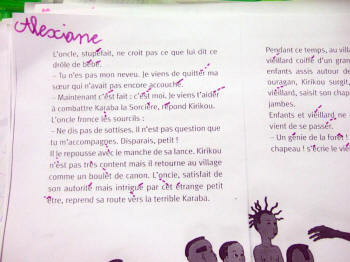 Alexiane
L'oncle, stupéfait, ne croit pas ce que lui dit ce
drôle de bébé.
– Tu n'es pas mon neveu. Je viens de quitter ma
sœur qui n'avait pas encore accouché.
– Maintenant c'est fait : c'est moi. Je viens t'aider
à combattre Karaba la Sorcière, répond Kirikou.
L'oncle fronce les sourcils :
– Ne dis pas de sottises. Il n'est pas question que
tu m'accompagnes. Disparais, petit !
Il le repousse avec le manche de sa lance. Kirikou
n'est pas très content mais il retourne au village
comme un boulet de canon. L'oncle, satisfait de
son autorité mais intrigué par cet étrange petit
être, reprend sa route vers la terrible Karaba.
Pendant ce temps, au
vieillard coiffé d'un
enfants assis autour
ouragan, Kirikou surgit
vieillard, saisit son
jambes.
Enfants et vieillard, ne
vient de se passer.
– Un génie de la
chapeau ! s'écrie le